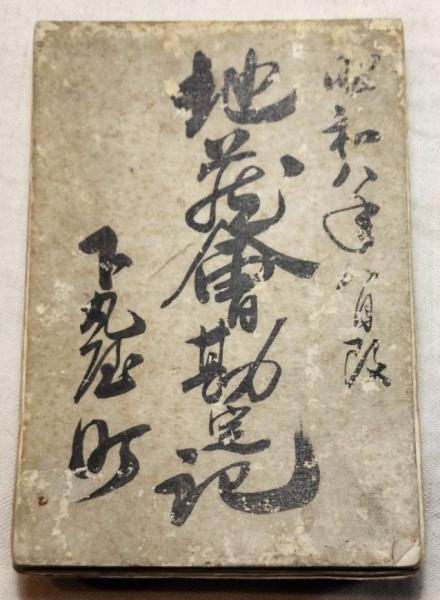 昭和八年八月改
地蔵會勘定記
下丸屋町